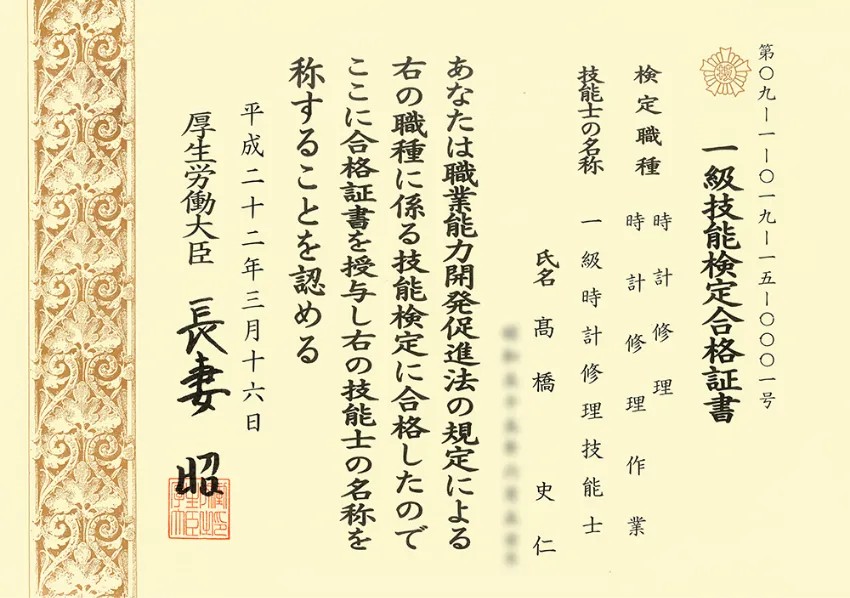 第〇九―一―〇一九―一五―〇〇〇一号
一級技能検定合格証書
検定職種 時計修理
時計修理作業
技能士の名称 一級時計修理技能士
氏名 髙橋 史仁
あなたは職業能力開発促進法の規定による
右の職種に係る技能検定に合格したので
ここに合格証書を授与し右の技能士の名称を
称することを認める
平成二十二年三月十六日
厚生労働大臣 長妻 昭